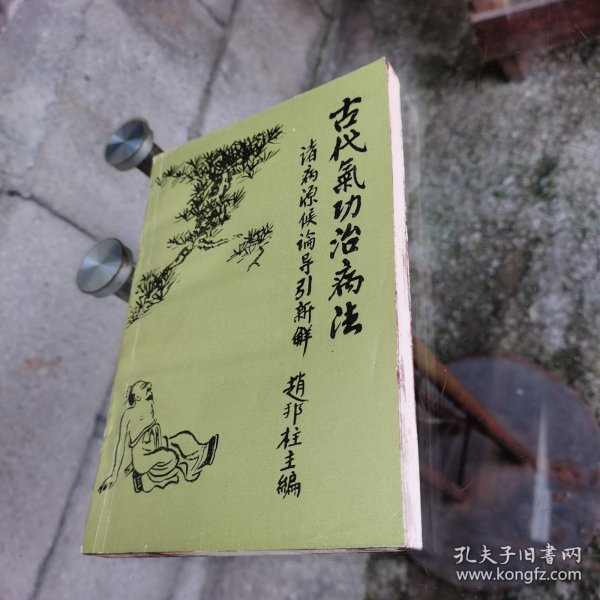 古代氣功治病法
诸病源候論导引新解
趙邦柱主编
孔夫子旧书网
www.kongfz.com